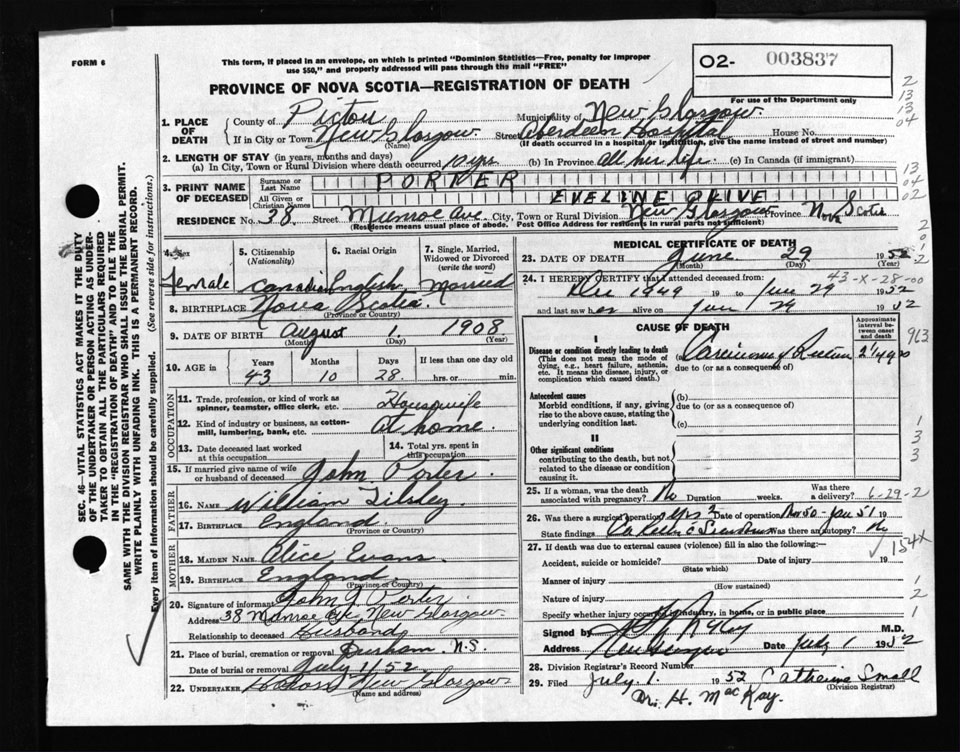 FORM 6
This form, if placed in an envelope, on which is printed "Dominion Statistics—Free, penalty for improper
use $50," and properly addressed will pass through the mail "FREE"
02- 003837
For use of the Department only
PROVINCE OF NOVA SCOTIA—REGISTRATION OF DEATH
2
13
13
04
1. PLACE OF DEATH
County of Pictou Municipality of New Glasgow
If in City or Town New Glasgow Street Aberdeen Hospital House No.
(Name) (If death occurred in a hospital or institution, give the name instead of street and number)
2. LENGTH OF STAY (in years, months and days)
(a) In City, Town or Rural Division where death occurred 10 yrs (b) In Province all her life (c) In Canada (if immigrant)
13
04
02
3. PRINT NAME OF DECEASED
Surname or Last Name PORTER
All Given or Christian Names EVELINE OLIVE
RESIDENCE No. 38 Street Munroe Ave. City, Town or Rural Division New Glasgow Province Nova Scotia
(Residence means usual place of abode. Post Office Address for residents in rural parts not sufficient)
4. Sex Female
5. Citizenship (Nationality) Canadian
6. Racial Origin English
7. Single, Married, Widowed or Divorced (write the word) Married
8. BIRTHPLACE Nova Scotia
(Province or Country)
9. DATE OF BIRTH August 1 1908
(Month) (Day) (Year)
10. AGE in Years 43 Months 10 Days 28 If less than one day old hrs. or min.
OCCUPATION
11. Trade, profession, or kind of work as spinner, teamster, office clerk, etc. Housewife
12. Kind of industry or business, as cotton-mill, lumbering, bank, etc. At home
13. Date deceased last worked at this occupation
14. Total yrs. spent in this occupation
15. If married give name of wife or husband of deceased John Porter
FATHER
16. Name William Tilsley
17. BIRTHPLACE England
(Province or Country)
MOTHER
18. MAIDEN NAME Alice Evans
19. BIRTHPLACE England
(Province or Country)
20. Signature of informant John J Porter
Address 38 Munroe Ave New Glasgow
Relationship to deceased Husband
21. Place of burial, cremation or removal Durham N.S.
Date of burial or removal July 1/52
22. UNDERTAKER New Glasgow
(Name and address)
MEDICAL CERTIFICATE OF DEATH
23. DATE OF DEATH June 29 1952
(Month) (Day) (Year)
43-X-28-00
24. I HEREBY CERTIFY that I attended deceased from:
Dec 1949 19 to June 29 1952
and last saw her alive on June 29 1952
CAUSE OF DEATH
Approximate interval between onset and death
I
Disease or condition directly leading to death
(This does not mean the mode of dying, e.g., heart failure, asthenia, etc. It means the disease, injury, or complication which caused death.)
(a) Carcinoma of Rectum
due to (or as a consequence of)
Antecedent causes
Morbid conditions, if any, giving rise to the above cause, stating the underlying condition last.
(b)
due to (or as a consequence of)
(c)
II
Other significant conditions contributing to the death, but not related to the disease or condition causing it.
913
1
3
3
25. If a woman, was the death associated with pregnancy? No Duration weeks. Was there a delivery?
6-29-2
26. Was there a surgical operation? Yes 2 Date of operation Nov 50 - Jan 51 19
State findings Was there an autopsy? No
154X
27. If death was due to external causes (violence) fill in also the following:—
Accident, suicide or homicide? Date of injury 19
(State which)
Manner of injury
(How sustained)
Nature of injury
Specify whether injury occurred in industry, in home, or in public place
1
2
1
Signed by M.D.
Address New Glasgow Date July 1 1952
28. Division Registrar's Record Number
29. Filed July 1. 1952 Catherine Small
(Division Registrar)
Dr. H. MacKay.
SEC. 46—VITAL STATISTICS ACT MAKES IT THE DUTY
OF THE UNDERTAKER OR PERSON ACTING AS UNDER-
TAKER TO OBTAIN ALL THE PARTICULARS REQUIRED
IN THE "REGISTRATION OF DEATH" AND TO FILE THE
SAME WITH THE DIVISION REGISTRAR WHO SHALL ISSUE THE BURIAL PERMIT.
WRITE PLAINLY WITH UNFADING INK. THIS IS A PERMANENT RECORD.
Every item of information should be carefully supplied. (See reverse side for instructions.)